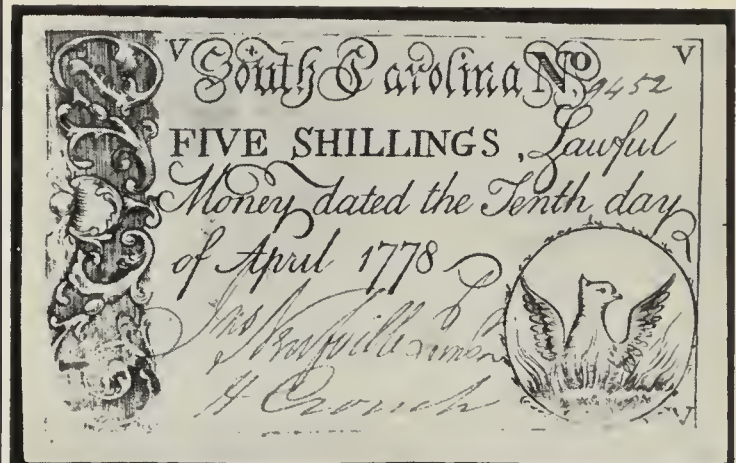 V South Carolina No. 9452 V
FIVE SHILLINGS, Lawful
Money dated the Tenth day
of April 1778
Jno
H Crouch
V